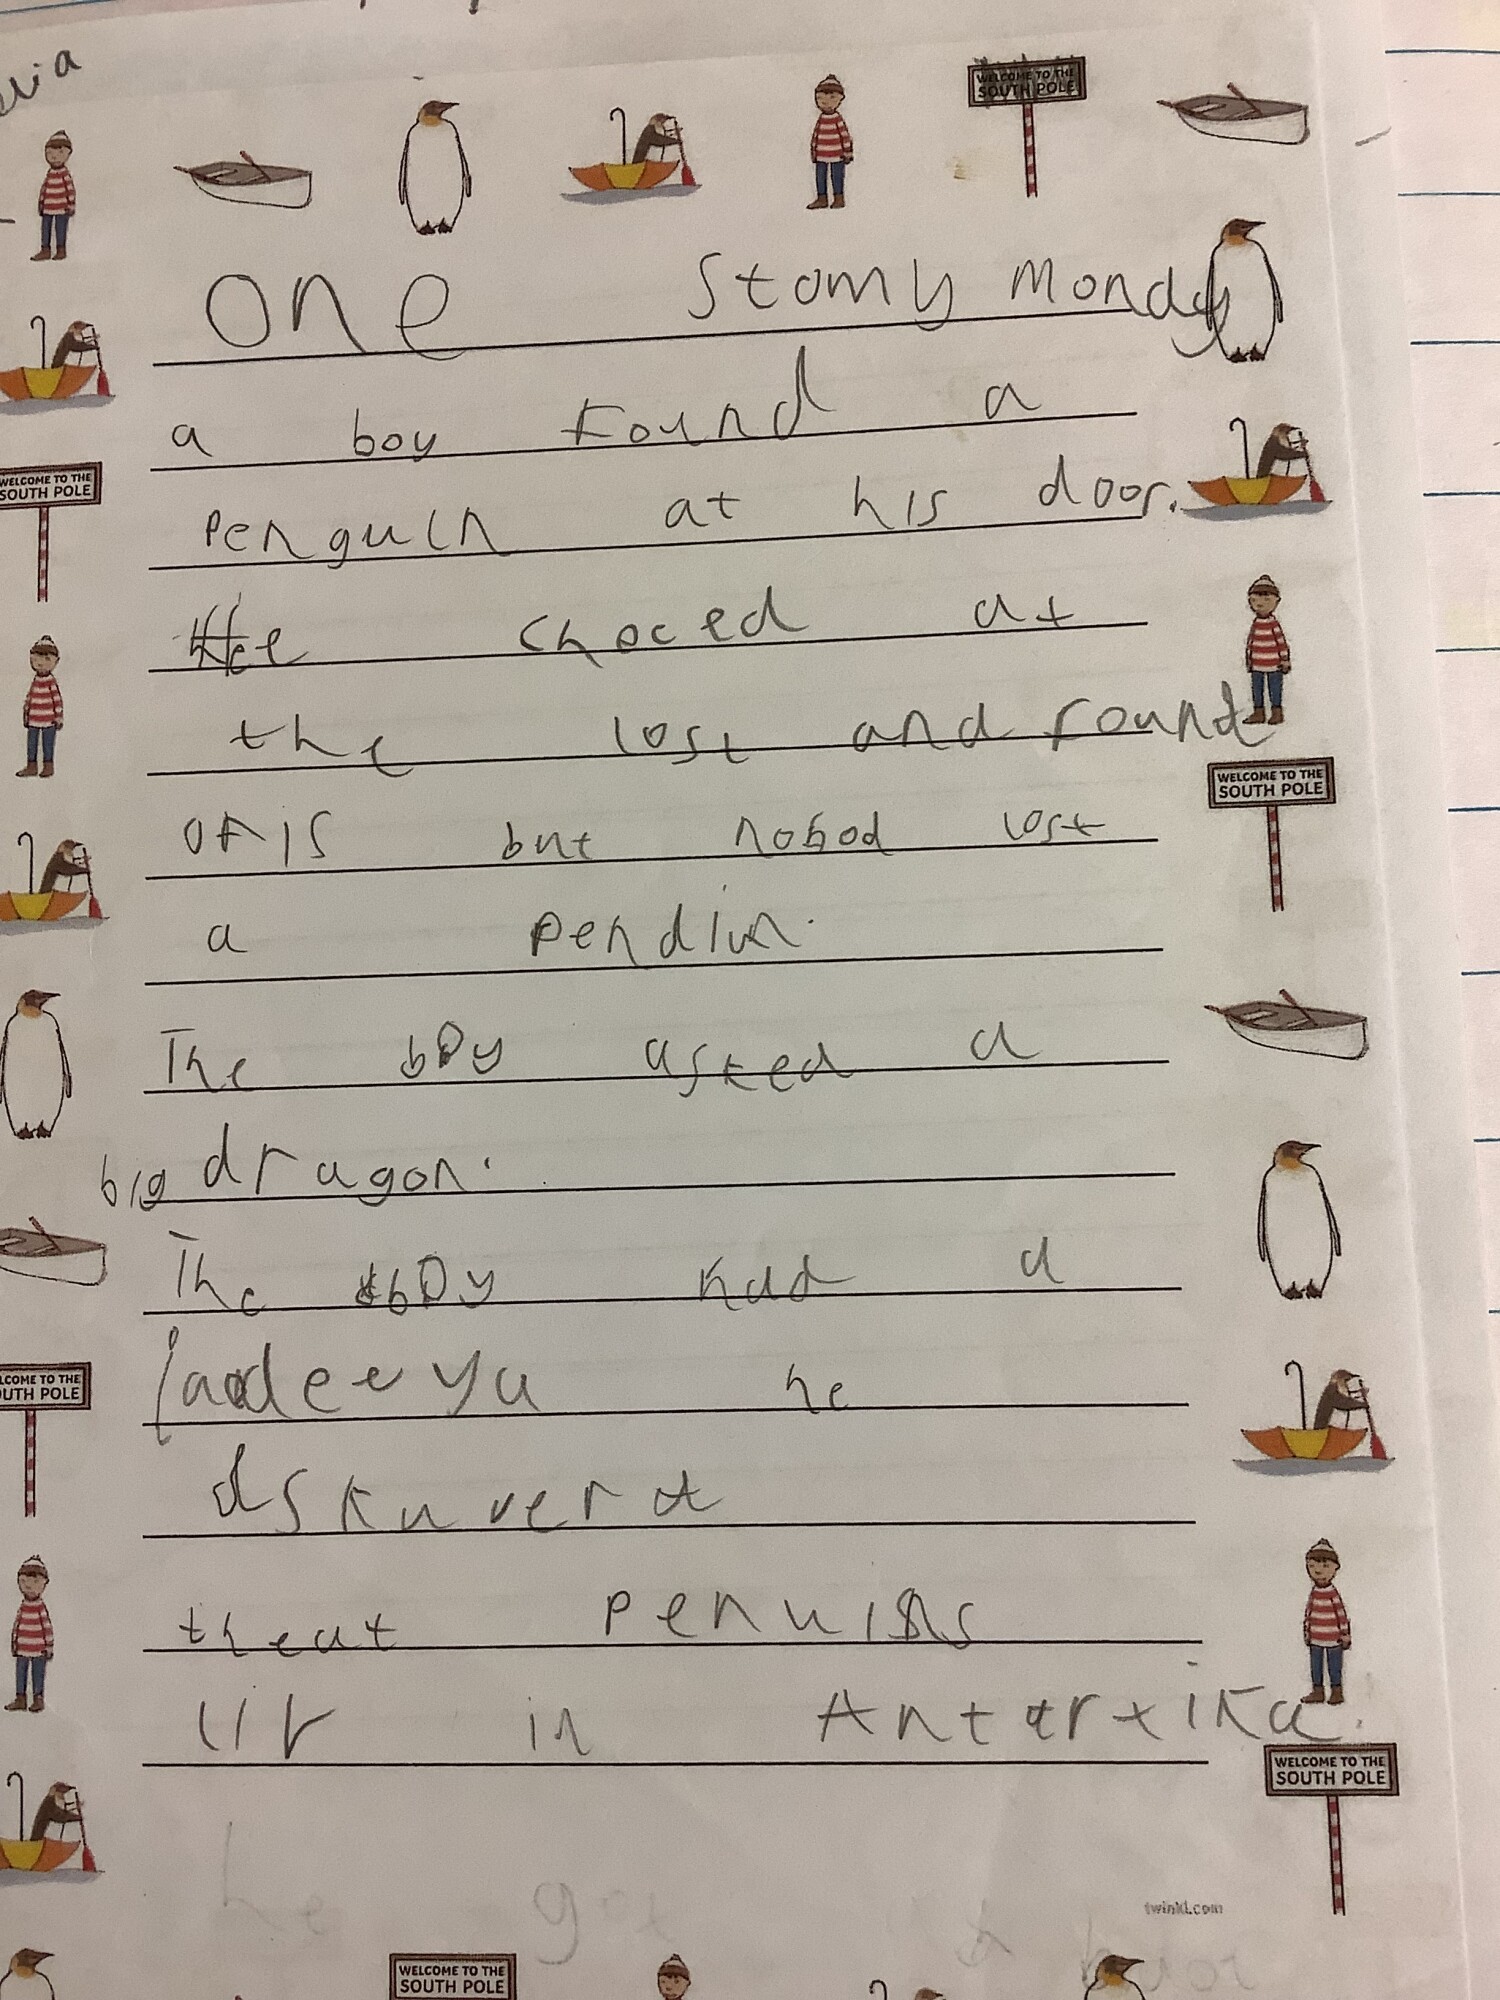 WELCOME TO THE SOUTH POLE
one stomy monday
a boy found a
penguin at his door.
WELCOME TO THE SOUTH POLE
He checed at
the lost and found
ofis but nobod lost
WELCOME TO THE SOUTH POLE
a pendin.
The boy asked a
big dragon.
The boy had a
he
dskuverd
theat penuins
liv in Antartika.
WELCOME TO THE SOUTH POLE
twinkl.com
WELCOME TO THE SOUTH POLE